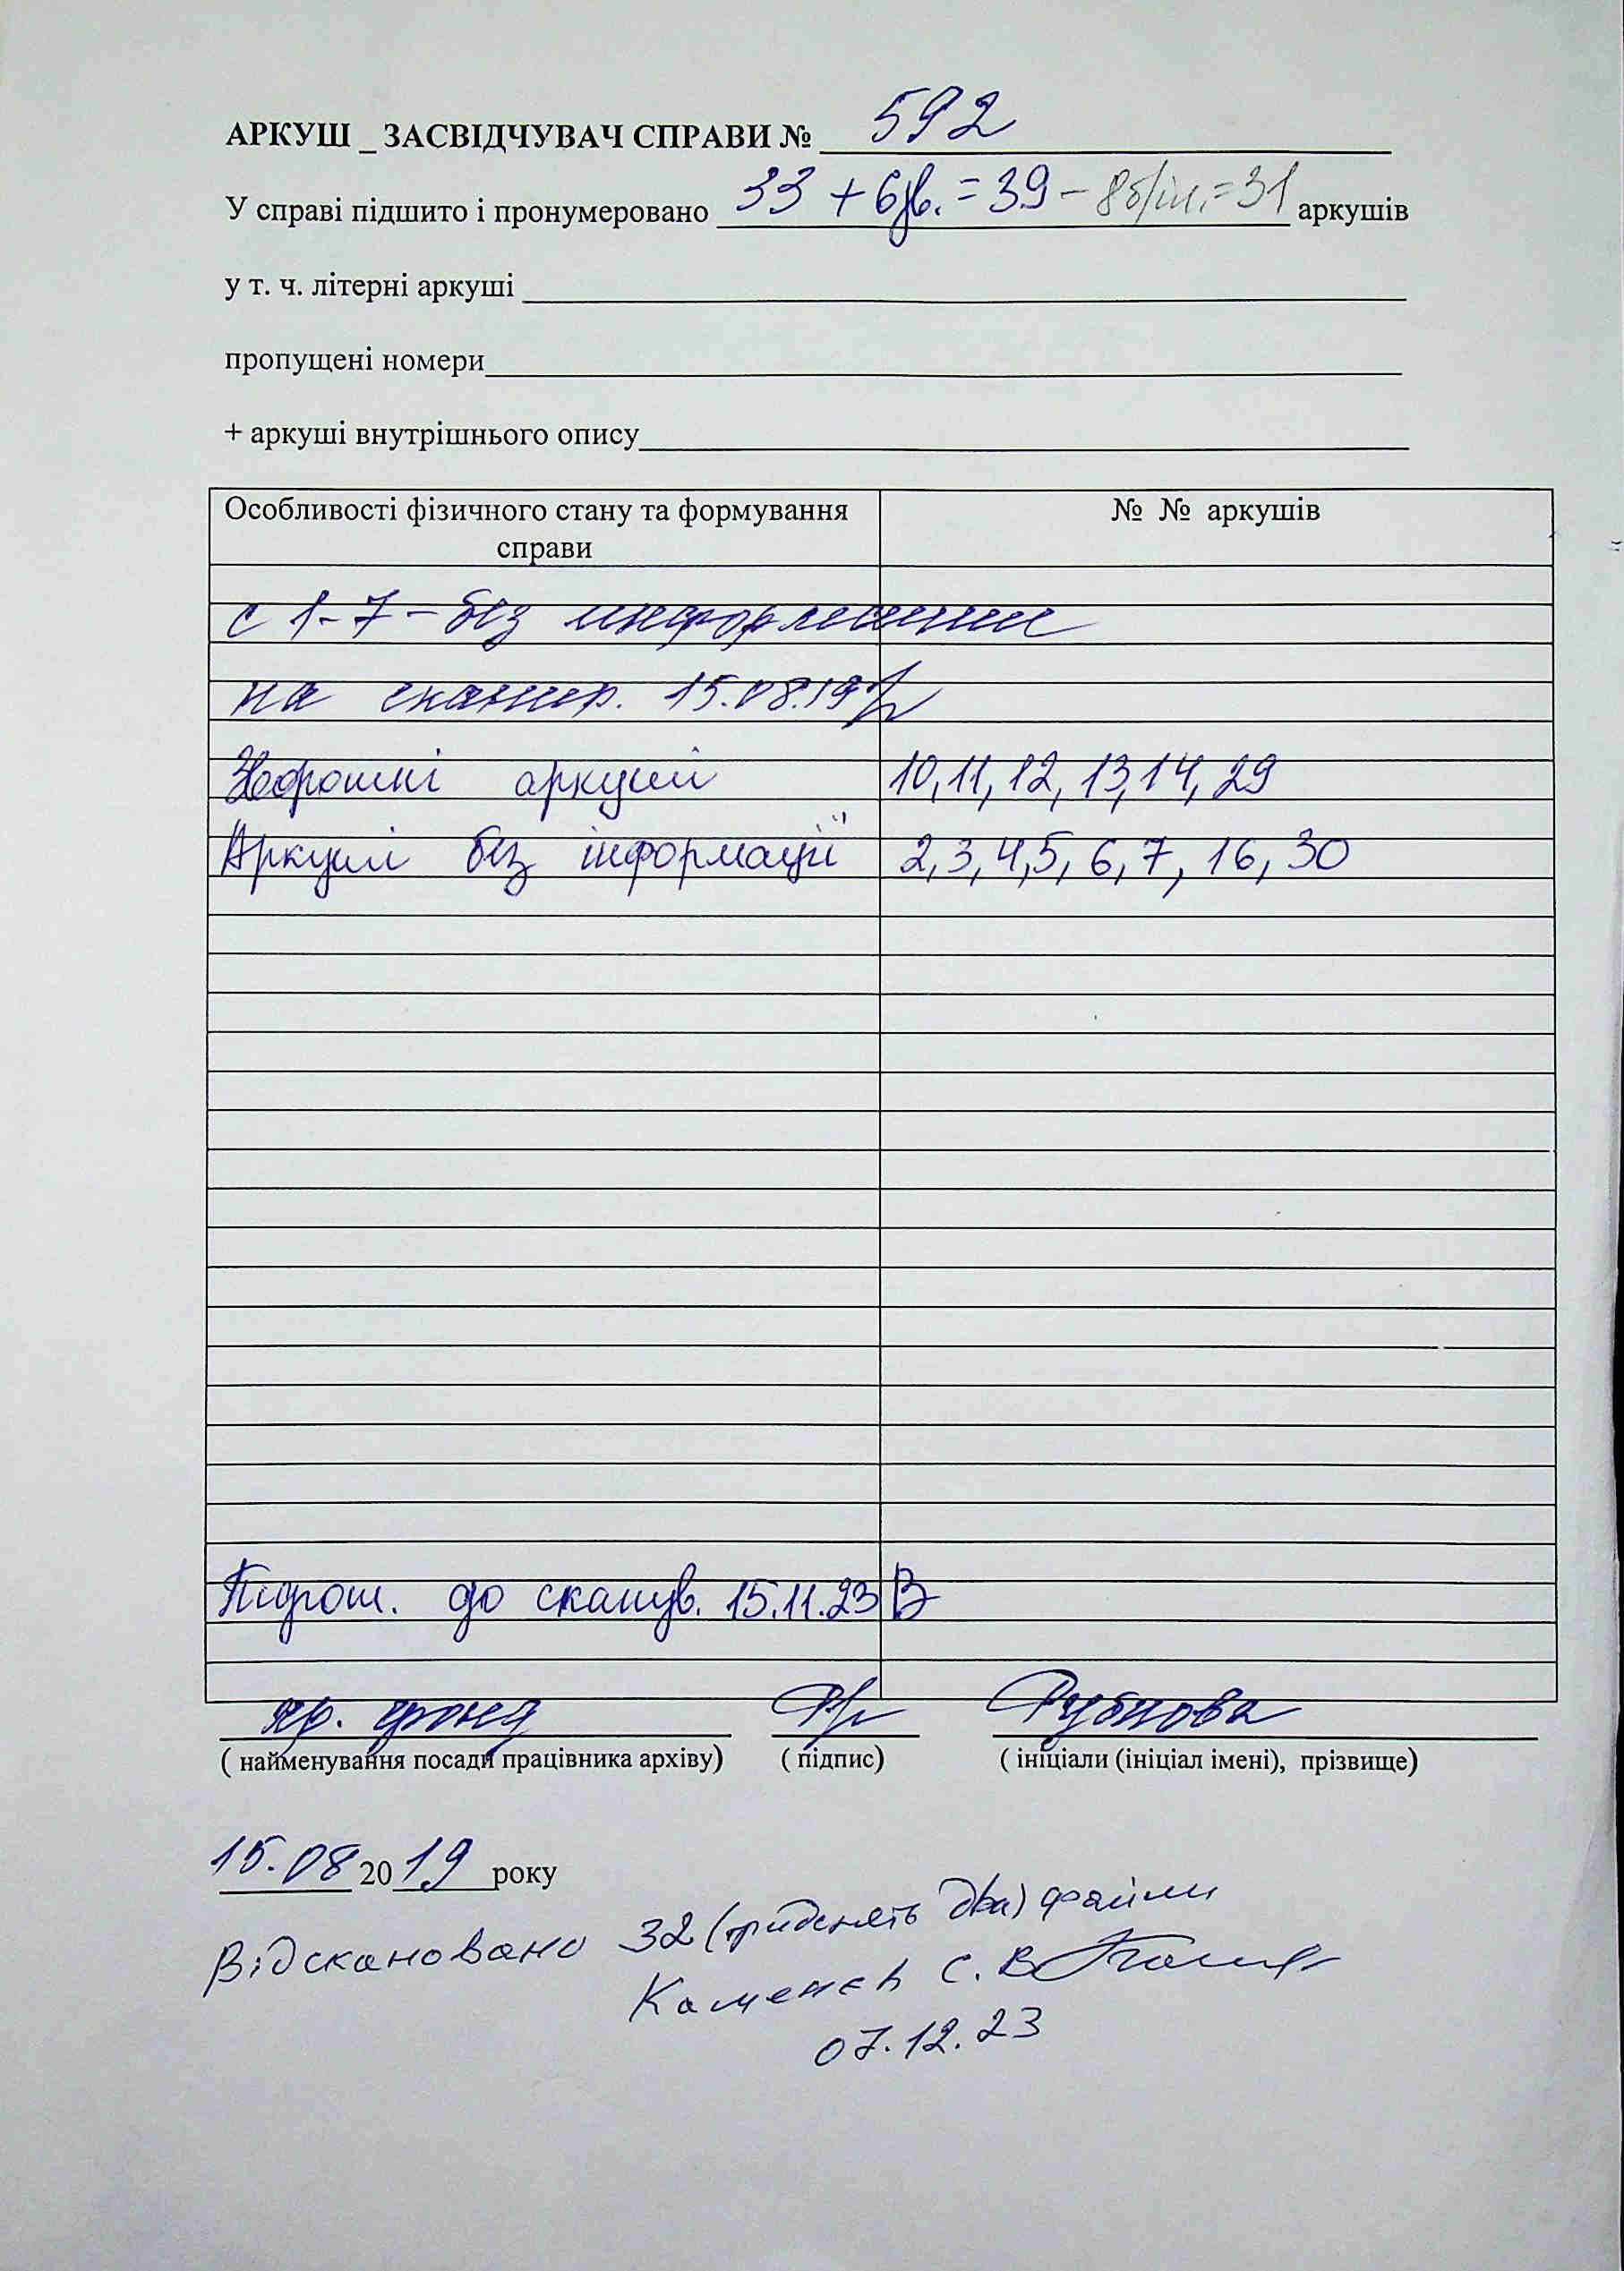 АРКУШ _ ЗАСВІДЧУВАЧ СПРАВИ № 592
У справі підшито і пронумеровано 33 + 6 дв. = 39 - 8 б/ін. = 31 аркушів
у т. ч. літерні аркуші
пропущені номери
+ аркуші внутрішнього опису
Особливості фізичного стану та формування справи № № аркушів
с 1-7 - без информации
на сканир. 15.08.19
аркуші 10, 11, 12, 13, 14, 29
Аркуші без інформації 2, 3, 4, 5, 6, 7, 16, 30
до сканув. 15.11.23
( найменування посади працівника архіву) ( підпис) ( ініціали (ініціал імені), прізвище)
15.08 2019 року
Відскановано 32 (тридцять два) файли
Каменєв С. В.
07.12.23